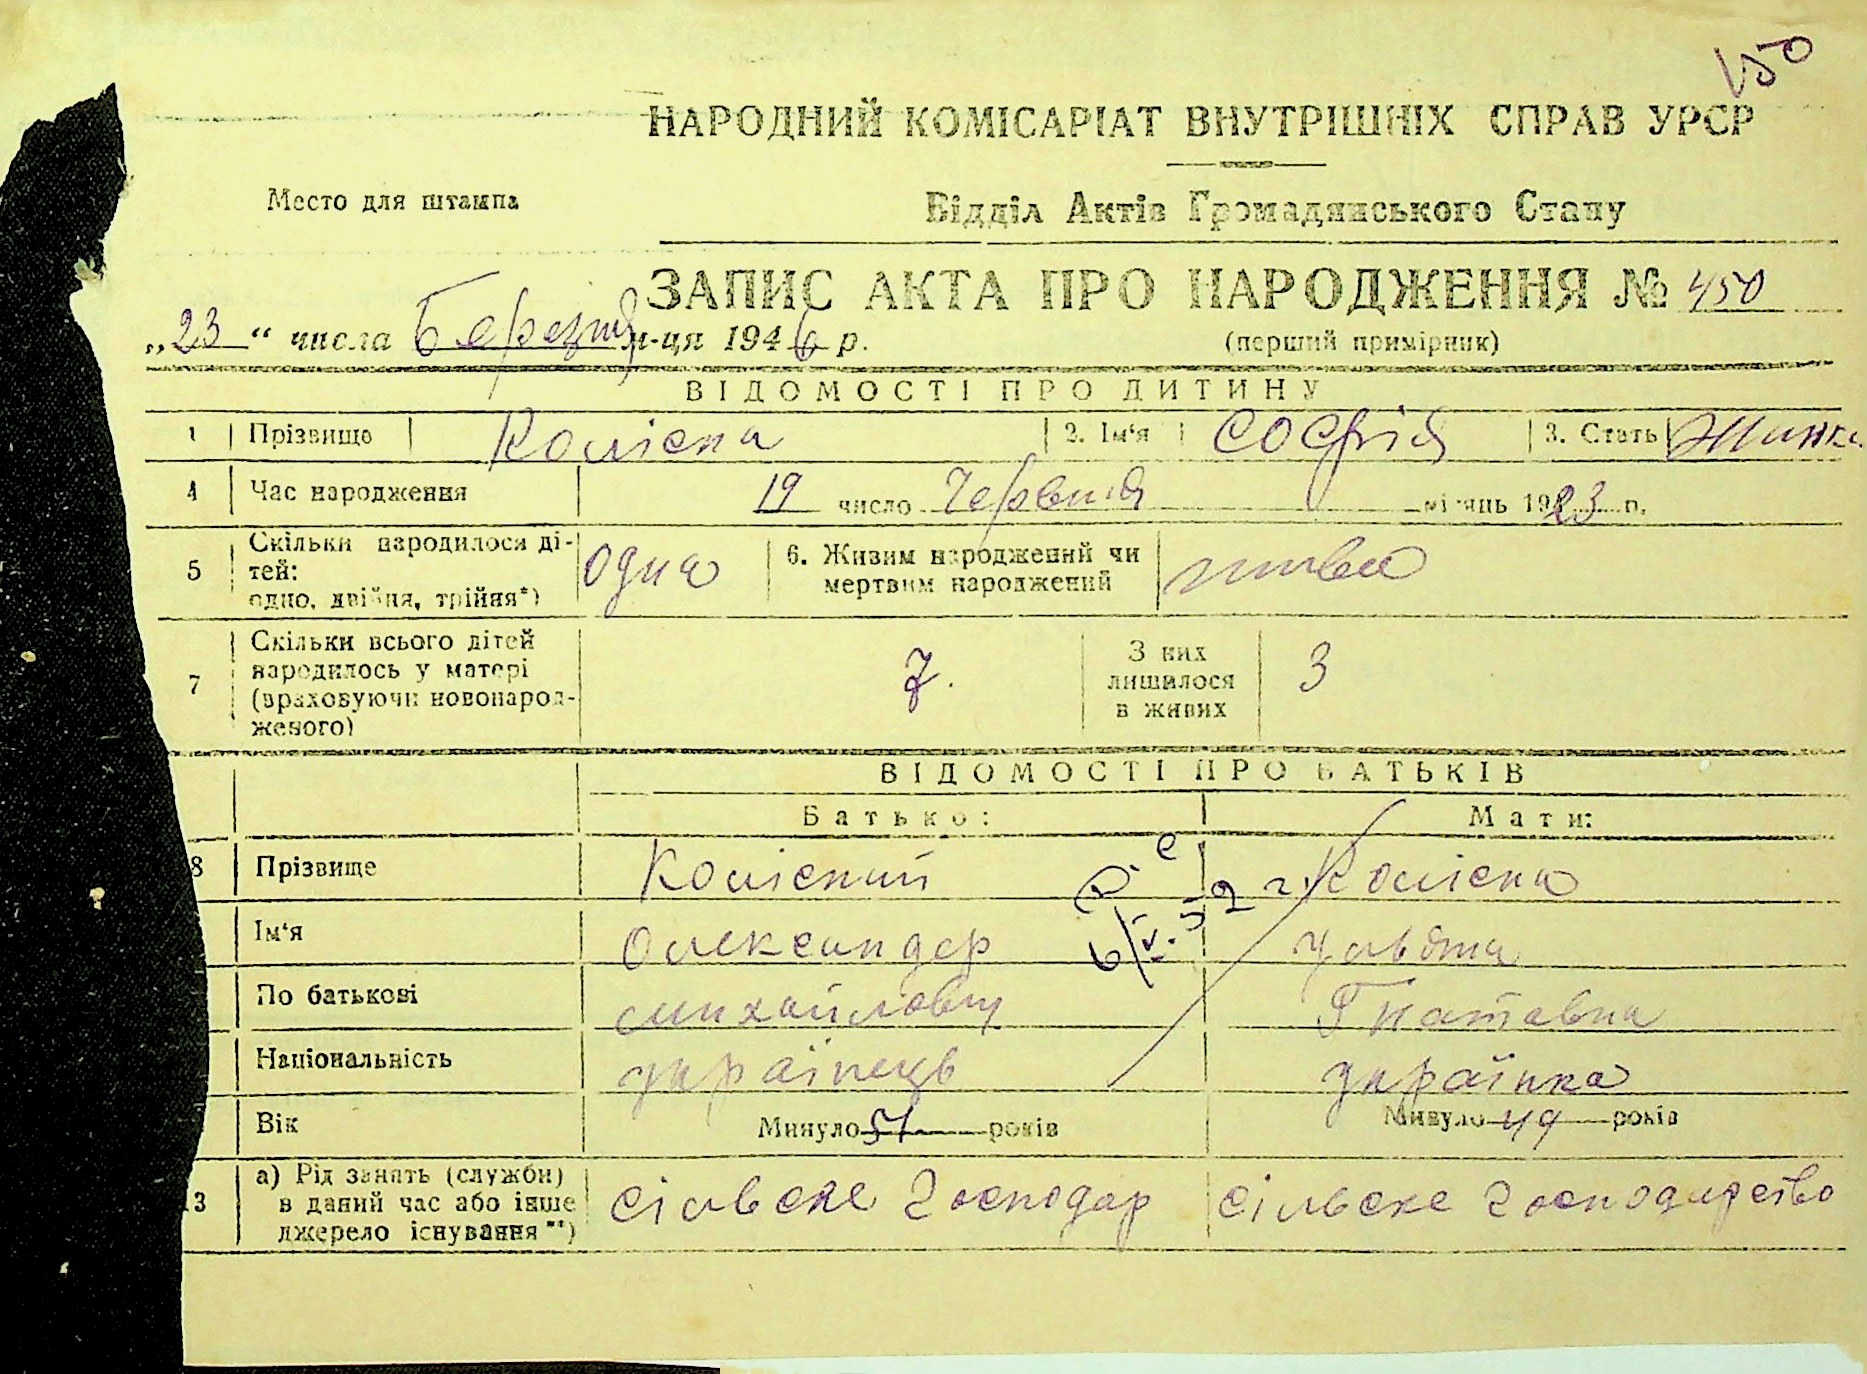 450
НАРОДНИЙ КОМІСАРІАТ ВНУТРІШНІХ СПРАВ УРСР
Место для штампа
Відділ Актів Громадянського Стану
ЗАПИС АКТА ПРО НАРОДЖЕННЯ № 450
„23“ числа Березня м-ця 1946 р.
(перший примірник)
ВІДОМОСТІ ПРО ДИТИНУ
1 Прізвище Коліска 2. Ім‘я Софія 3. Стать Жінка
4 Час народження 19 число Червня місяць 1923 р.
5 Скільки народилося ді-
тей:
одно, двійня, трійня*) одна
6. Живим народжений чи
мертвим народжений жива
7 Скільки всього дітей
народилось у матері
(враховуючи новонарод-
женого) 7.
З них
лишилося
в живих 3
ВІДОМОСТІ ПРО БАТЬКІВ
Батько: Мати:
8 Прізвище Коліский Коліска
Ім‘я Олександер Ульяна
По батькові Михайлович Гнатовна
Національність українець українка
Вік Минуло 51 років Минуло 49 років
13 а) Рід занять (служби)
в даний час або інше
джерело існування**) сільске господар сільске господарство